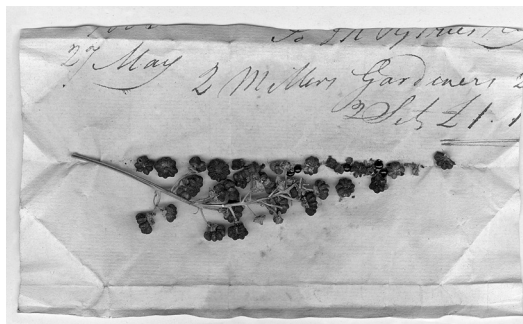 To
27 May
2 Millers Gardeners 2
2 Sets £1.1